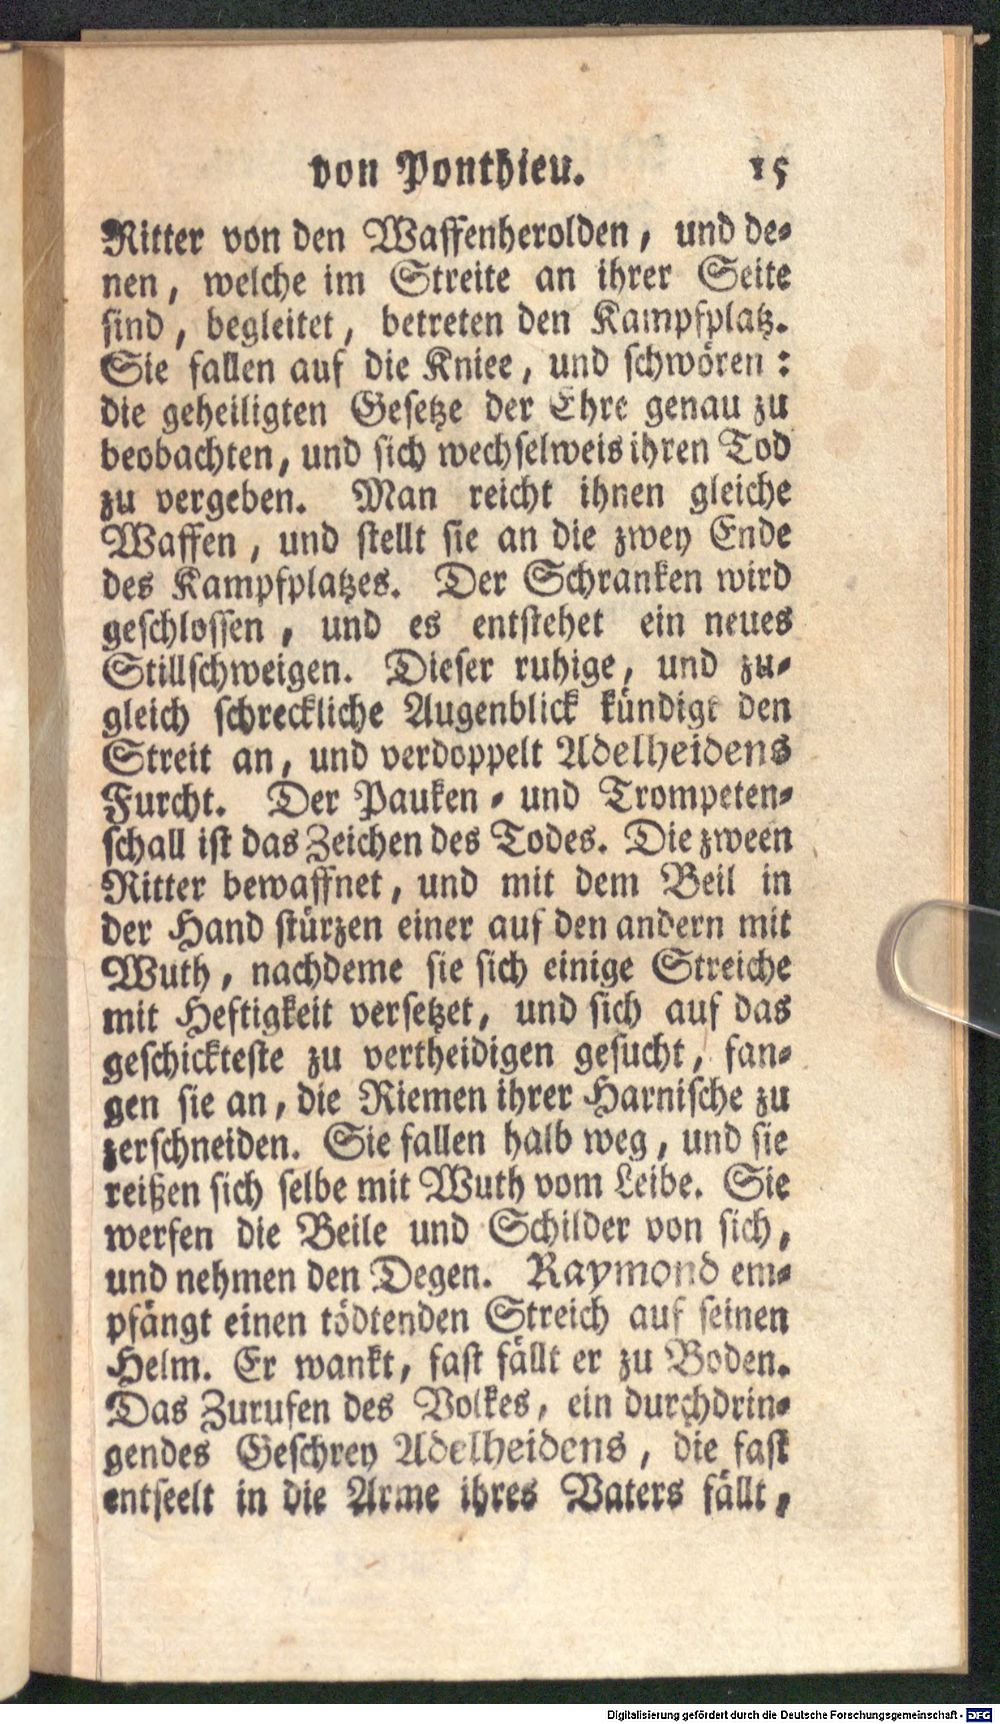 von Ponthieu. 15
Ritter von den Waffenherolden, und de-
nen, welche im Streite an ihrer Seite
sind, begleitet, betreten den Kampfplatz.
Sie fallen auf die Kniee, und schwören:
die geheiligten Gesetze der Ehre genau zu
beobachten, und sich wechselweis ihren Tod
zu vergeben. Man reicht ihnen gleiche
Waffen, und stellt sie an die zwey Ende
des Kampfplatzes. Der Schranken wird
geschlossen, und es entstehet ein neues
Stillschweigen. Dieser ruhige, und zu-
gleich schreckliche Augenblick kündigt den
Streit an, und verdoppelt Adelheidens
Furcht. Der Pauken- und Trompeten-
schall ist das Zeichen des Todes. Die zween
Ritter bewaffnet, und mit dem Beil in
der Hand stürzen einer auf den andern mit
Wuth, nachdeme sie sich einige Streiche
mit Heftigkeit versetzet, und sich auf das
geschickteste zu vertheidigen gesucht, fan-
gen sie an, die Riemen ihrer Harnische zu
zerschneiden. Sie fallen halb weg, und sie
reißen sich selbe mit Wuth vom Leibe. Sie
werfen die Beile und Schilder von sich,
und nehmen den Degen. Raymond em-
pfängt einen tödtenden Streich auf seinen
Helm. Er wankt, fast fällt er zu Boden.
Das Zurufen des Volkes, ein durchdrin-
gendes Geschrey Adelheidens, die fast
entseelt in die Arme ihres Vaters fällt,
Digitalisierung gefördert durch die Deutsche Forschungsgemeinschaft - DFG